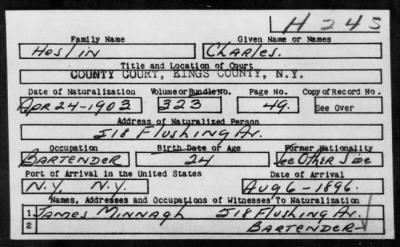 H 245
Family Name Given Name or Names
Heslin Charles.
Title and Location of Court
COUNTY COURT, KINGS COUNTY, N.Y.
Date of Naturalization Volume or Bundle No. Page No. Copy of Record No.
Apr 24-1903 323 49. See Over
Address of Naturalized Person
518 Flushing Av.
Occupation Birth Date or Age Former Nationality
BARTENDER 24 See Other Side
Port of Arrival in the United States Date of Arrival
N.Y. N.Y. Aug 6-1896.
Names, Addresses and Occupations of Witnesses To Naturalization
1 James Minnagh 518 Flushing Av.
2 Bartender